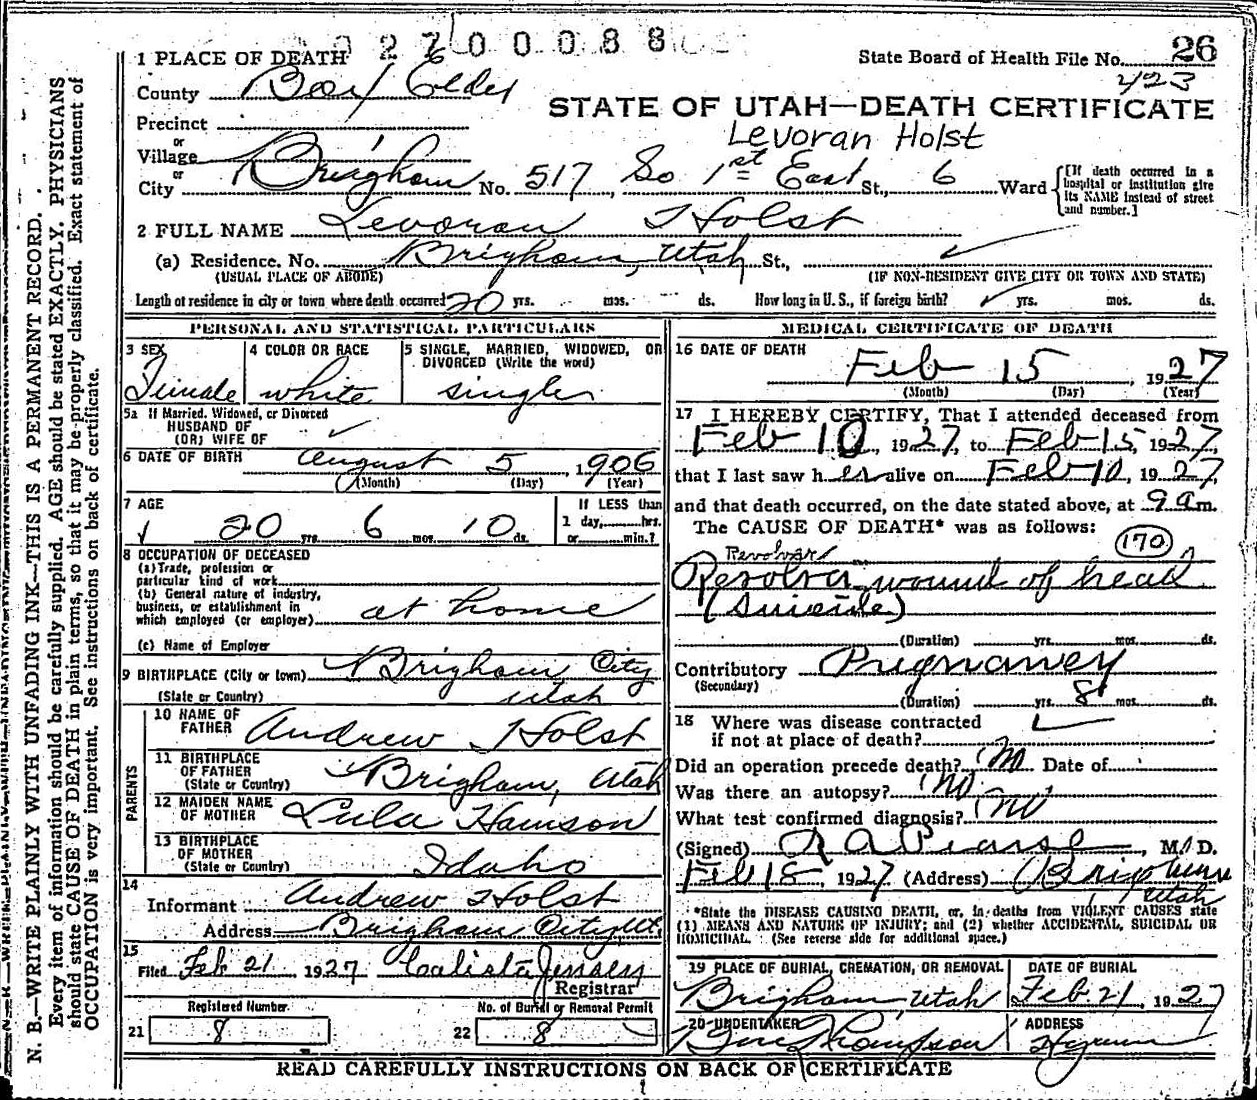 92700088
1 PLACE OF DEATH
State Board of Health File No. 26
423
County Box Elder
STATE OF UTAH—DEATH CERTIFICATE
Precinct
Levoran Holst
or
Village
or
City Brigham No. 517 So 1st East St., 6 Ward
[If death occurred in a hospital or institution give its NAME instead of street and number.]
2 FULL NAME Levoran Holst
(a) Residence. No. Brigham, Utah St.,
(USUAL PLACE OF ABODE) (IF NON-RESIDENT GIVE CITY OR TOWN AND STATE)
Length of residence in city or town where death occurred 20 yrs. mos. ds. How long in U. S., if foreign birth? yrs. mos. ds.
PERSONAL AND STATISTICAL PARTICULARS
3 SEX
Female
4 COLOR OR RACE
white
5 SINGLE, MARRIED, WIDOWED, OR
DIVORCED (Write the word)
single
5a If Married, Widowed, or Divorced
HUSBAND OF
(OR) WIFE OF
6 DATE OF BIRTH August 5 1906
(Month) (Day) (Year)
7 AGE
20 yrs. 6 mos. 10 ds.
If LESS than
1 day, hrs.
or min.?
8 OCCUPATION OF DECEASED
(a) Trade, profession or
particular kind of work
(b) General nature of industry,
business, or establishment in
which employed (or employer) at home
(c) Name of Employer
9 BIRTHPLACE (City or town) Brigham City
(State or Country) Utah
PARENTS
10 NAME OF
FATHER Andrew Holst
11 BIRTHPLACE
OF FATHER
(State or Country) Brigham, Utah
12 MAIDEN NAME
OF MOTHER Lula
13 BIRTHPLACE
OF MOTHER
(State or Country) Idaho
14
Informant Andrew Holst
Address Brigham City Ut.
15
Filed Feb 21 1927 Calista Jensen
Registrar
Registered Number
21 8
No. of Burial or Removal Permit
22 8
MEDICAL CERTIFICATE OF DEATH
16 DATE OF DEATH
Feb 15, 1927
(Month) (Day) (Year)
17 I HEREBY CERTIFY, That I attended deceased from
Feb 10, 1927, to Feb 15, 1927
that I last saw her alive on Feb 10, 1927,
and that death occurred, on the date stated above, at 9 a m.
The CAUSE OF DEATH* was as follows:
170
Revolver
Revolver wound of head
(suicide)
(Duration) yrs. mos. ds.
Contributory Pregnancy
(Secondary)
(Duration) yrs. 8 mos. ds.
18 Where was disease contracted
if not at place of death?
Did an operation precede death? no Date of
Was there an autopsy? no
What test confirmed diagnosis? no
(Signed) R A Pearse, M. D.
Feb 18, 1927 (Address) Brigham
Utah
*State the DISEASE CAUSING DEATH, or, in deaths from VIOLENT CAUSES state
(1) MEANS AND NATURE OF INJURY; and (2) whether ACCIDENTAL, SUICIDAL OR
HOMICIDAL. (See reverse side for additional space.)
19 PLACE OF BURIAL, CREMATION, OR REMOVAL
Brigham Utah
DATE OF BURIAL
Feb. 21, 1927
20 UNDERTAKER
Thompson
ADDRESS
READ CAREFULLY INSTRUCTIONS ON BACK OF CERTIFICATE
N. B.—WRITE PLAINLY WITH UNFADING INK—THIS IS A PERMANENT RECORD.
Every item of information should be carefully supplied. AGE should be stated EXACTLY. PHYSICIANS
should state CAUSE OF DEATH in plain terms, so that it may be properly classified. Exact statement of
OCCUPATION is very important. See instructions on back of certificate.